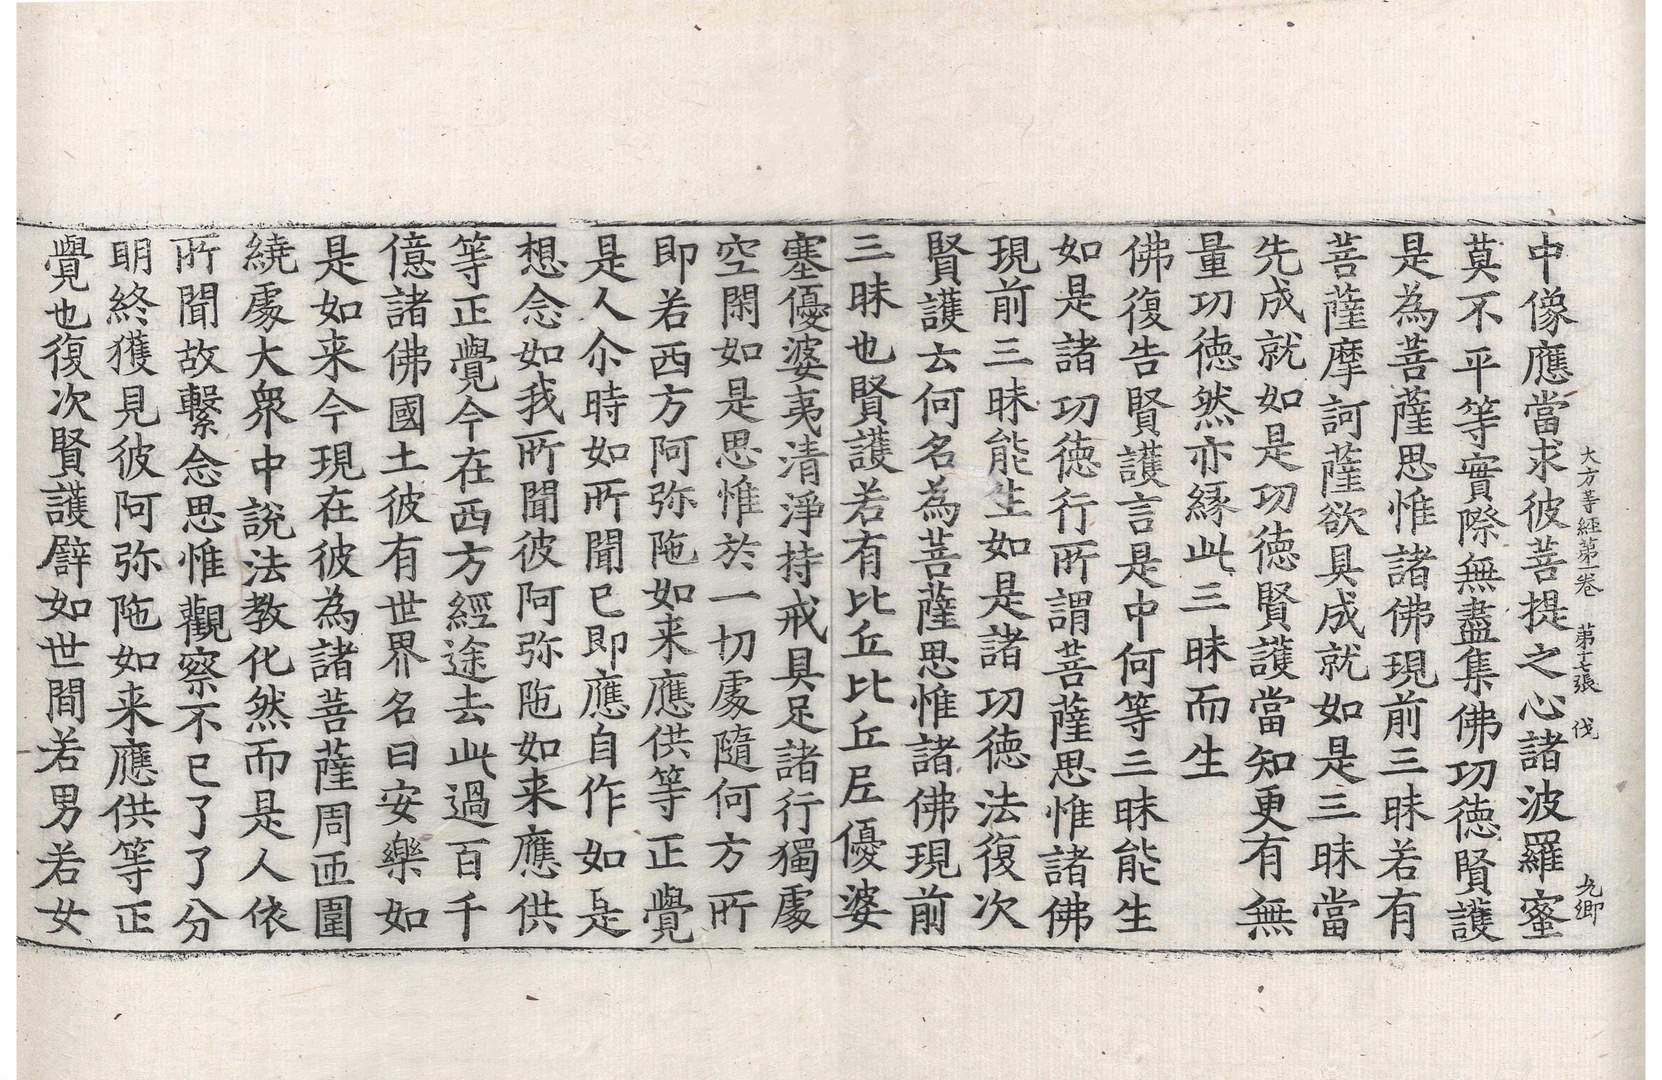 大方等經第一卷　第十七張　伐　九卿
中像應當求彼菩提之心諸波羅蜜
莫不平等實際無盡集佛功德賢護
是為菩薩思惟諸佛現前三昧若有
菩薩摩訶薩欲具成就如是三昧當
先成就如是功德賢護當知更有無
量功德然亦緣此三昧而生
佛復告賢護言是中何等三昧能生
如是諸功德行所謂菩薩思惟諸佛
現前三昧能生如是諸功德法復次
賢護云何名為菩薩思惟諸佛現前
三昧也賢護若有比丘比丘尼優婆
塞優婆夷清淨持戒具足諸行獨處
空閑如是思惟於一切處隨何方所
即若西方阿弥陁如来應供等正覺
是人尒時如所聞已即應自作如是
想念如我所聞彼阿弥陁如来應供
等正覺今在西方經途去此過百千
億諸佛國土彼有世界名曰安樂如
是如来今現在彼為諸菩薩周匝圍
繞處大衆中說法教化然而是人依
所聞故繫念思惟觀察不已了了分
明終獲見彼阿弥陁如来應供等正
覺也復次賢護譬如世間若男若女